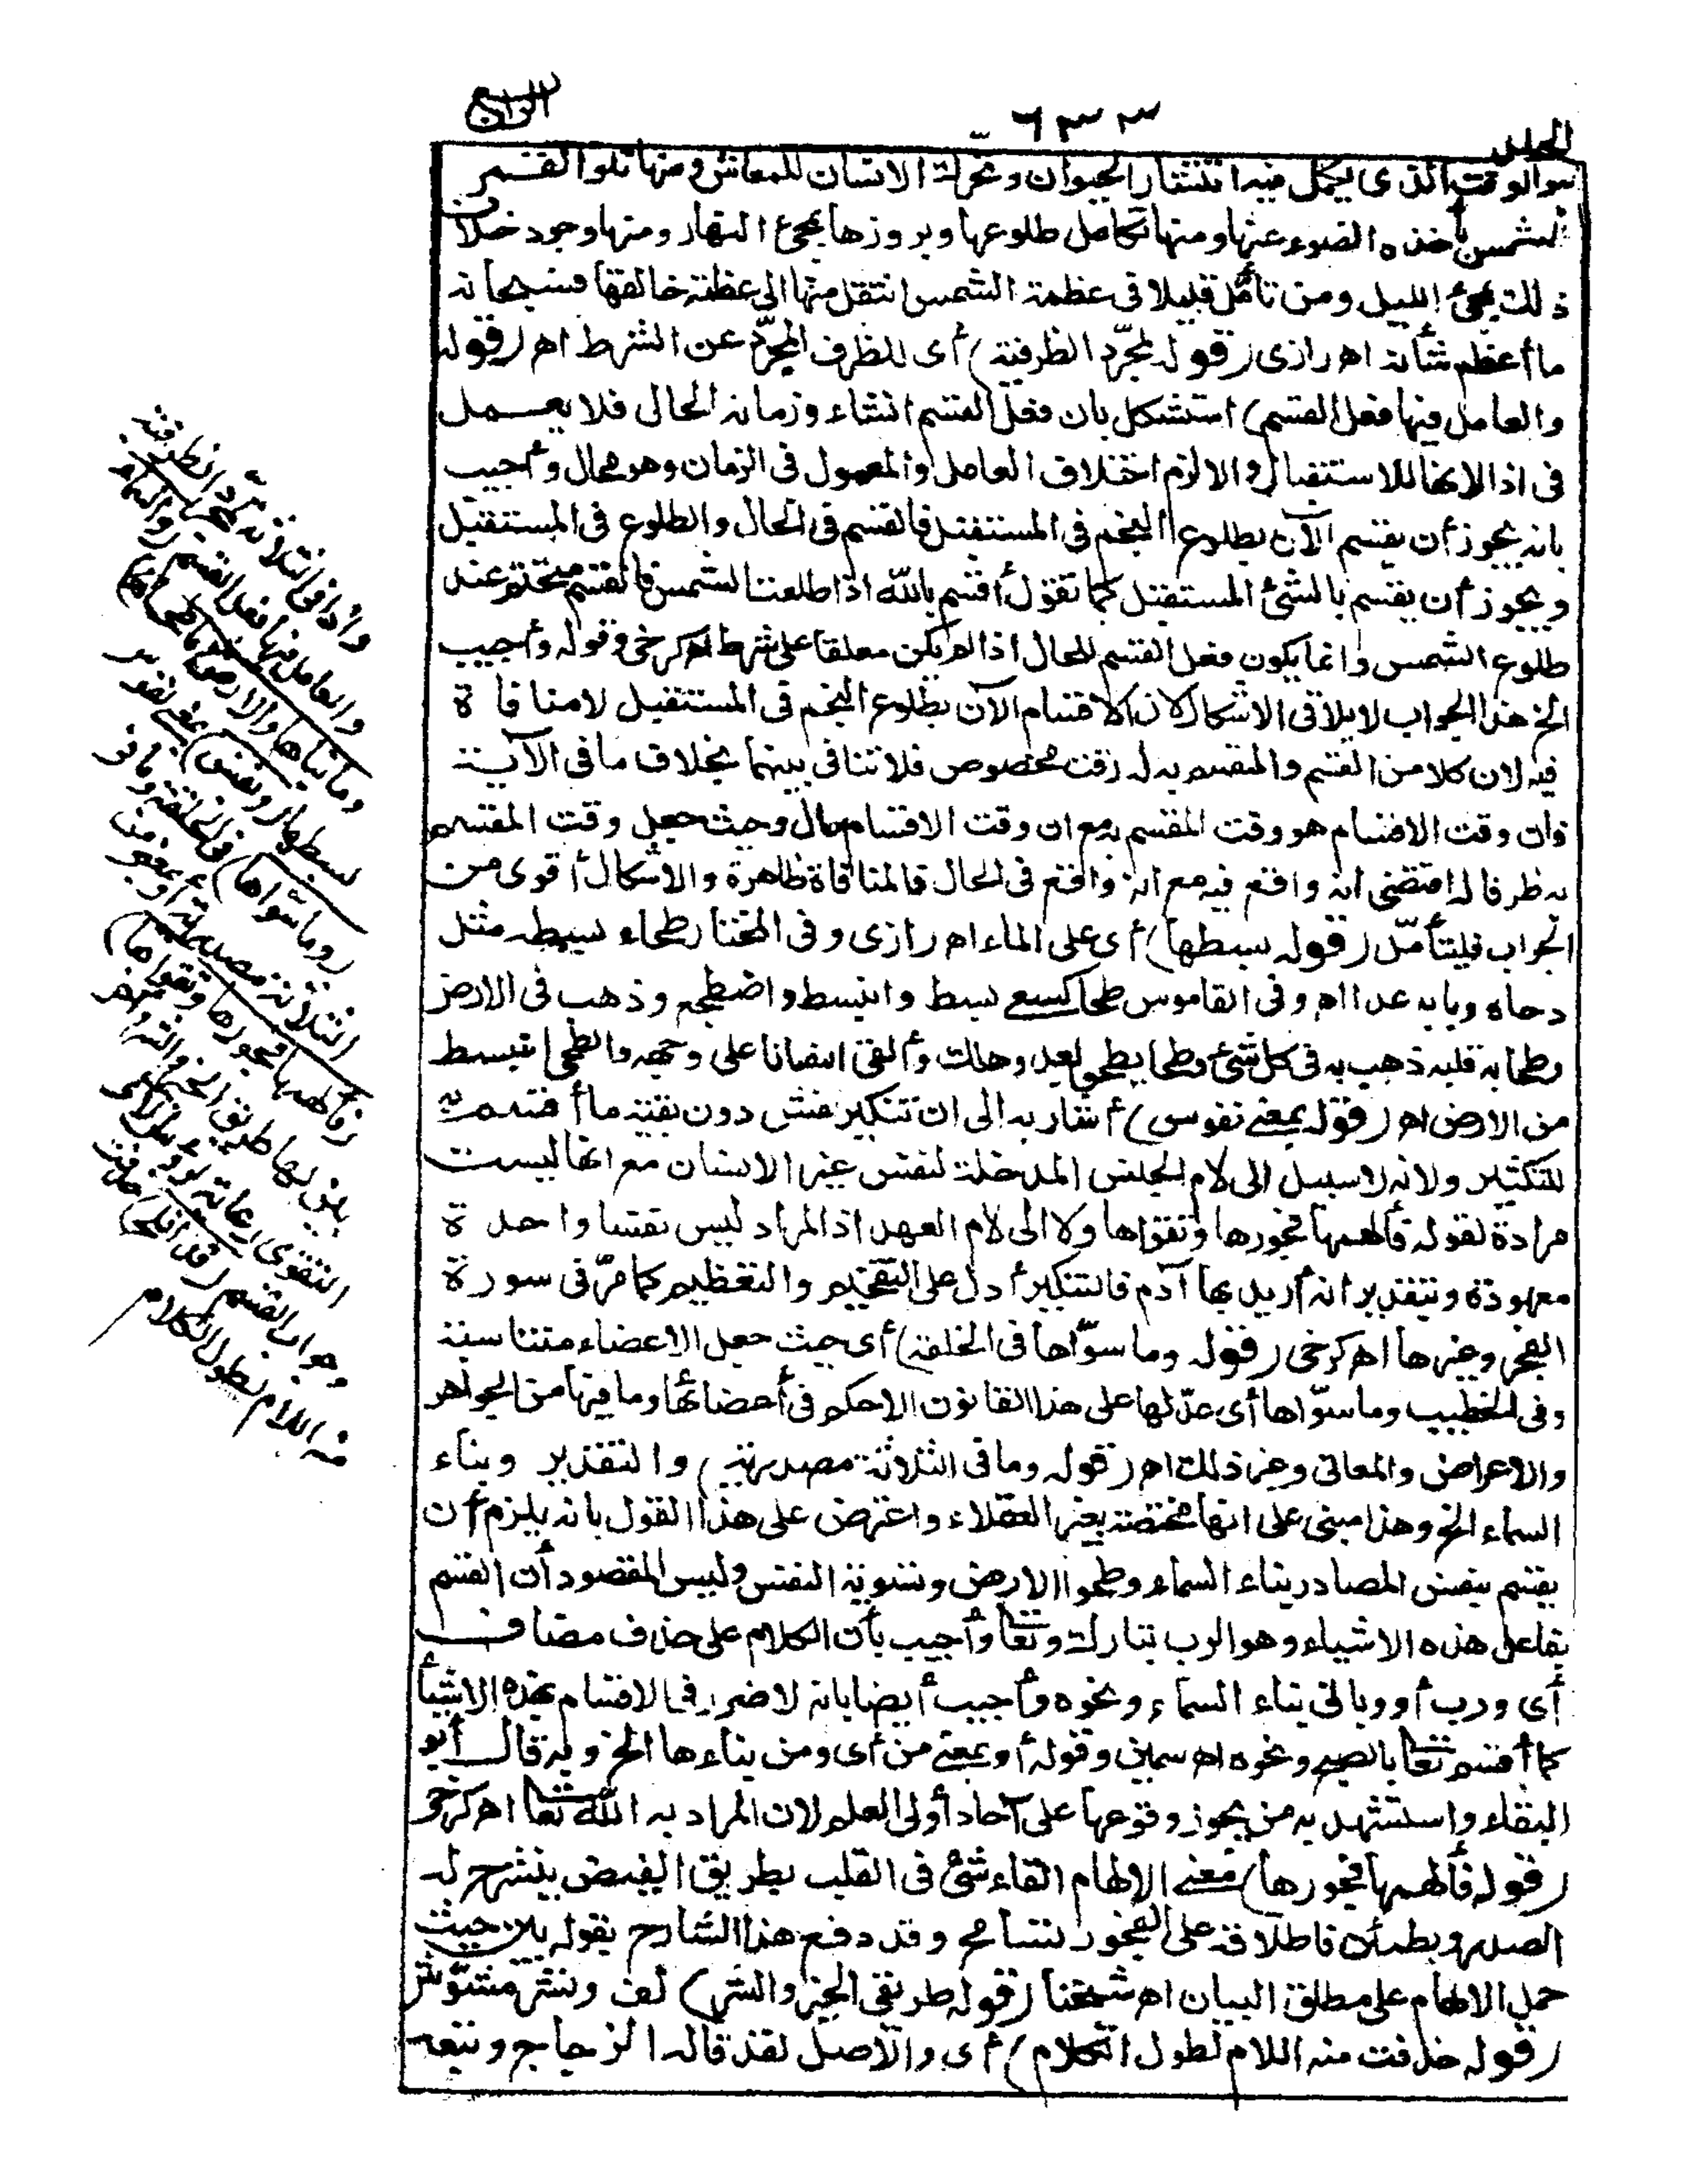 الجلد
٦٣٣
الرابع
هو الوقت الذى يكمل فيه انتشار الحيوان وتحرك الانسان للمعاش ومنها تلو القمر
الشمس بأخذه الضوء عنها ومنها تكامل طلوعها وبروزها بمجئ النهار ومنها وجود خلاف
ذلك بمجئ الليل ومن تأمل قليلا فى عظمة الشمس انتقل منها الى عظمة خالقها فسبحانه
ما أعظم شأنه اهـ رازى (قوله لمجرّد الظرفية) أى للظرف المجرّد عن الشرط اهـ (قوله
والعامل فيها فعل القسم) استشكل بان فعل القسم انشاء وزمانه الحال فلا يعمل
فى اذا لانها للاستقبال والا لزم اختلاف العامل والمعمول فى الزمان وهو محال وأجيب
بانه يجوز أن يقسم الآن بطلوع النجم فى المستقبل فالقسم فى الحال والطلوع فى المستقبل
ويجوز أن يقسم بالشئ المستقبل كما تقول أقسم بالله اذا طلعت الشمس فالقسم متحتم عند
طلوع الشمس وانما يكون فعل القسم للحال اذا لم يكن معلقا على شرط اهـ كرخى وقوله وأجيب
الخ هذا الجواب لا يلاقى الاشكال لان الاقسام الآن بطلوع النجم فى المستقبل لا منافاة
فيه لان كلا من القسم والمقسم به له وقت مخصوص فلا تنافى بينهما بخلاف ما فى الآية
فان وقت الاقسام هو وقت المقسم به مع ان وقت الاقسام حال وحيث جعل وقت المقسم
به ظرفا له اقتضى انه واقع فيه مع انه واقع فى الحال فالمنافاة ظاهرة والاشكال أقوى من
الجواب فليتأمّل (قوله بسطها) أى على الماء اهـ رازى وفى المختار طحاه بسطه مثل
دحاه وبابه عدا اهـ وفى القاموس طحا كسعى بسط وانبسط واضطجع وذهب فى الارض
وطحا به قلبه ذهب به فى كل شئ وطحا يطحو بعد وهلك وألقى انسانا على وجهه والطحى المنبسط
من الارض اهـ (قوله بمعنى نفوس) أشار به الى ان تنكير نفس دون بقية ما أقسم به
للتكثير ولانه لا سبيل الى لام الجنس المدخلة لنفس غير الانسان مع انها ليست
مرادة لقوله فألهمها فجورها وتقواها ولا الى لام العهد اذ المراد ليس نفسا واحدة
معهودة وبتقدير انه أريد بها آدم فالتنكير أدل على التفخيم والتعظيم كما مرّ فى سورة
الفجر وغيرها اهـ كرخى (قوله وما سوّاها فى الخلقة) أى حيث جعل الاعضاء متناسبة
وفى الخطيب وما سوّاها أى عدّلها على هذا القانون الاحكم فى أعضائها وما فيها من الجواهر
والاعراض والمعانى وغير ذلك اهـ (قوله وما فى الثلاثة مصدرية) والتقدير وبناء
السماء الخ وهذا مبنى على انها مختصة بغير العقلاء واعترض على هذا القول بانه يلزم أن
يقسم بنفس المصادر بناء السماء وطحو الارض وتسوية النفس وليس المقصود أن القسم
بفاعل هذه الاشياء وهو الرب تبارك وتعالى وأجيب بأن الكلام على حذف مضاف
أى ورب أو وبانى بناء السماء ونحوه وأجيب أيضا بانه لا ضرر فى الاقسام بهذه الاشيأ
كما أقسم تعالى بالصبح ونحوه اهـ سمين وقوله أو بمعنى من أى ومن بناءها الخ وبه قال أبو
البقاء واستشهد به من يجوز وقوعها على آحاد أولى العلم لان المراد به الله تعالى اهـ كرخى
(قوله فألهمها فجورها) معنى الالهام القاء شئ فى القلب بطريق الفيض ينشرح له
الصدر ويطمئن فاطلاقه على الفجور تسامح وقد دفع هذا الشارح بقوله بين حيث
حمل الالهام على مطلق البيان اهـ شيخنا (قوله طريقى الخير والشر) لف ونشر مشوّش
(قوله حذفت منه اللام لطول الكلام) أى والاصل لقد قاله الزجاج وتبعه
واذا فى الثلاثة لمجرّد الظرفية
والعامل فيها فعل القسم (والسماء
وما بناها والارض وما طحاها)
بسطها (ونفس) بمعنى نفوس
(وما سواها) فى الخلقة وما فى
الثلاثة مصدرية أو بمعنى من
(فألهمها فجورها وتقواها)
بين لها طريق الخير والشر وأخر
التقوى رعاية لرؤس الآى
وجواب القسم (قد أفلح) حذفت
منه اللام لطول الكلام